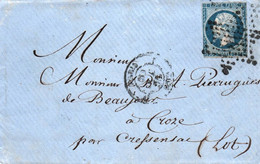 Monsieur
Monsieur A. Pierrugues
de Beaujeu
à Croze
par Cressensac (Lot)